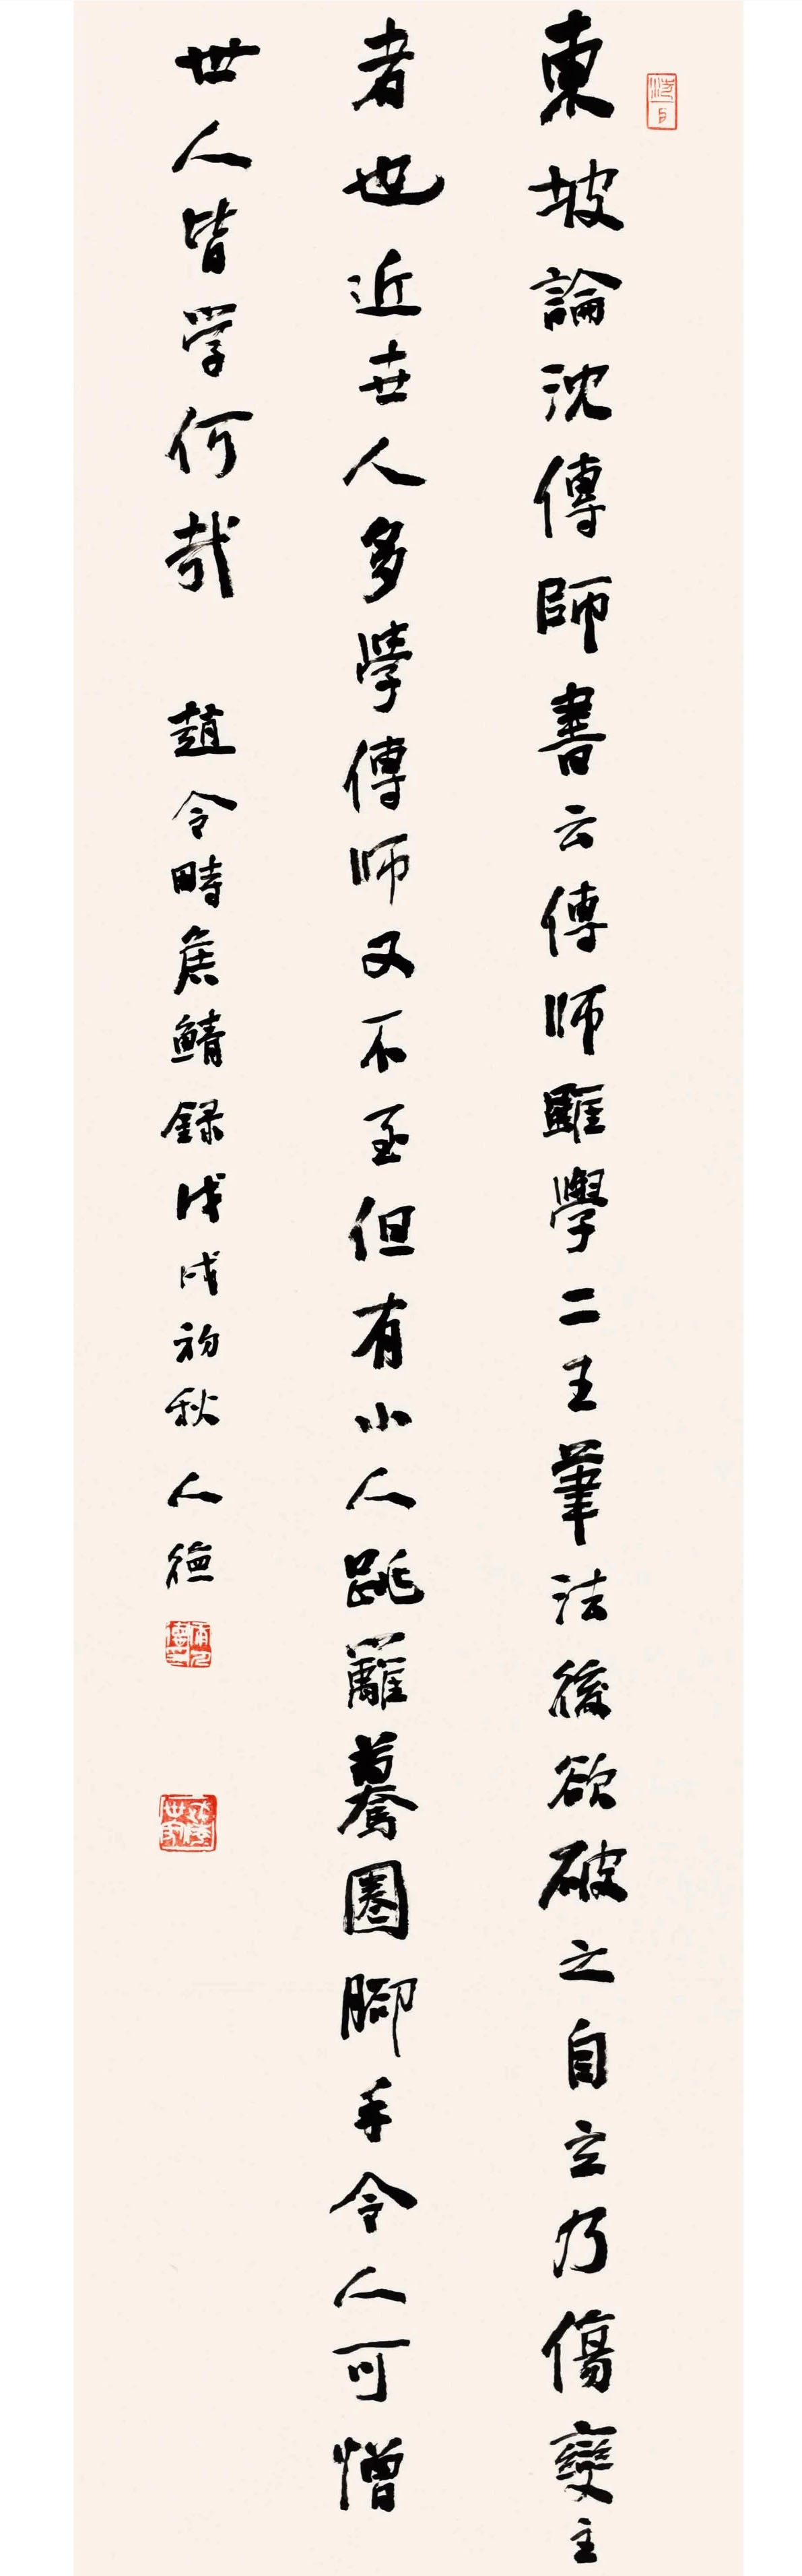 東坡論沈傳師書云傳師雖學二王筆法後欲破之自立乃傷變主
者也近世人多學傳師又不至但有小人跳籬驀圈脚手令人可憎
世人皆學何哉 趙令畤侯鯖録戊戌初秋人德